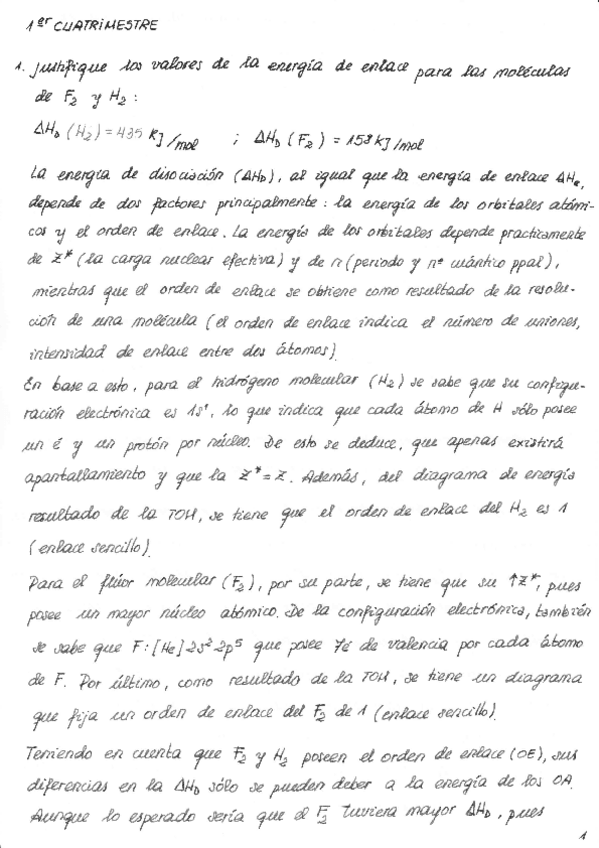 1er CUATRIMESTRE
1. Justifique los valores de la energía de enlace para las moléculas
de F2 y H2 :
ΔHD (H2) = 435 KJ/mol ; ΔHD (F2) = 158 KJ/mol
La energía de disociación (ΔHD), al igual que la energía de enlace ΔHe,
depende de dos factores principalmente : la energía de los orbitales atómi-
cos y el orden de enlace. La energía de los orbitales depende practicamente
de Z* (la carga nuclear efectiva) y de n (periodo y nº cuántico ppal),
mientras que el orden de enlace se obtiene como resultado de la resolu-
ción de una molécula (el orden de enlace indica el número de uniones,
intensidad de enlace entre dos átomos).
En base a esto, para el hidrógeno molecular (H2) se sabe que su configu-
ración electrónica es 1s¹, lo que indica que cada átomo de H sólo posee
un é y un protón por núcleo. De esto se deduce, que apenas existirá
apantallamiento y que la Z* = Z. Además, del diagrama de energía
resultado de la TOM, se tiene que el orden de enlace del H2 es 1
(enlace sencillo).
Para el flúor molecular (F2), por su parte, se tiene que su ↑Z*, pues
posee un mayor núcleo atómico. De la configuración electrónica, también
se sabe que F : [He] 2s² 2p⁵ que posee 7é de valencia por cada átomo
de F. Por último, como resultado de la TOM, se tiene un diagrama
que fija un orden de enlace del F2 de 1 (enlace sencillo).
Teniendo en cuenta que F2 y H2 poseen el orden de enlace (OE), sus
diferencias en la ΔHD sólo se pueden deber a la energía de los OA.
Aunque lo esperado sería que el F2 tuviera mayor ΔHD, pues
1